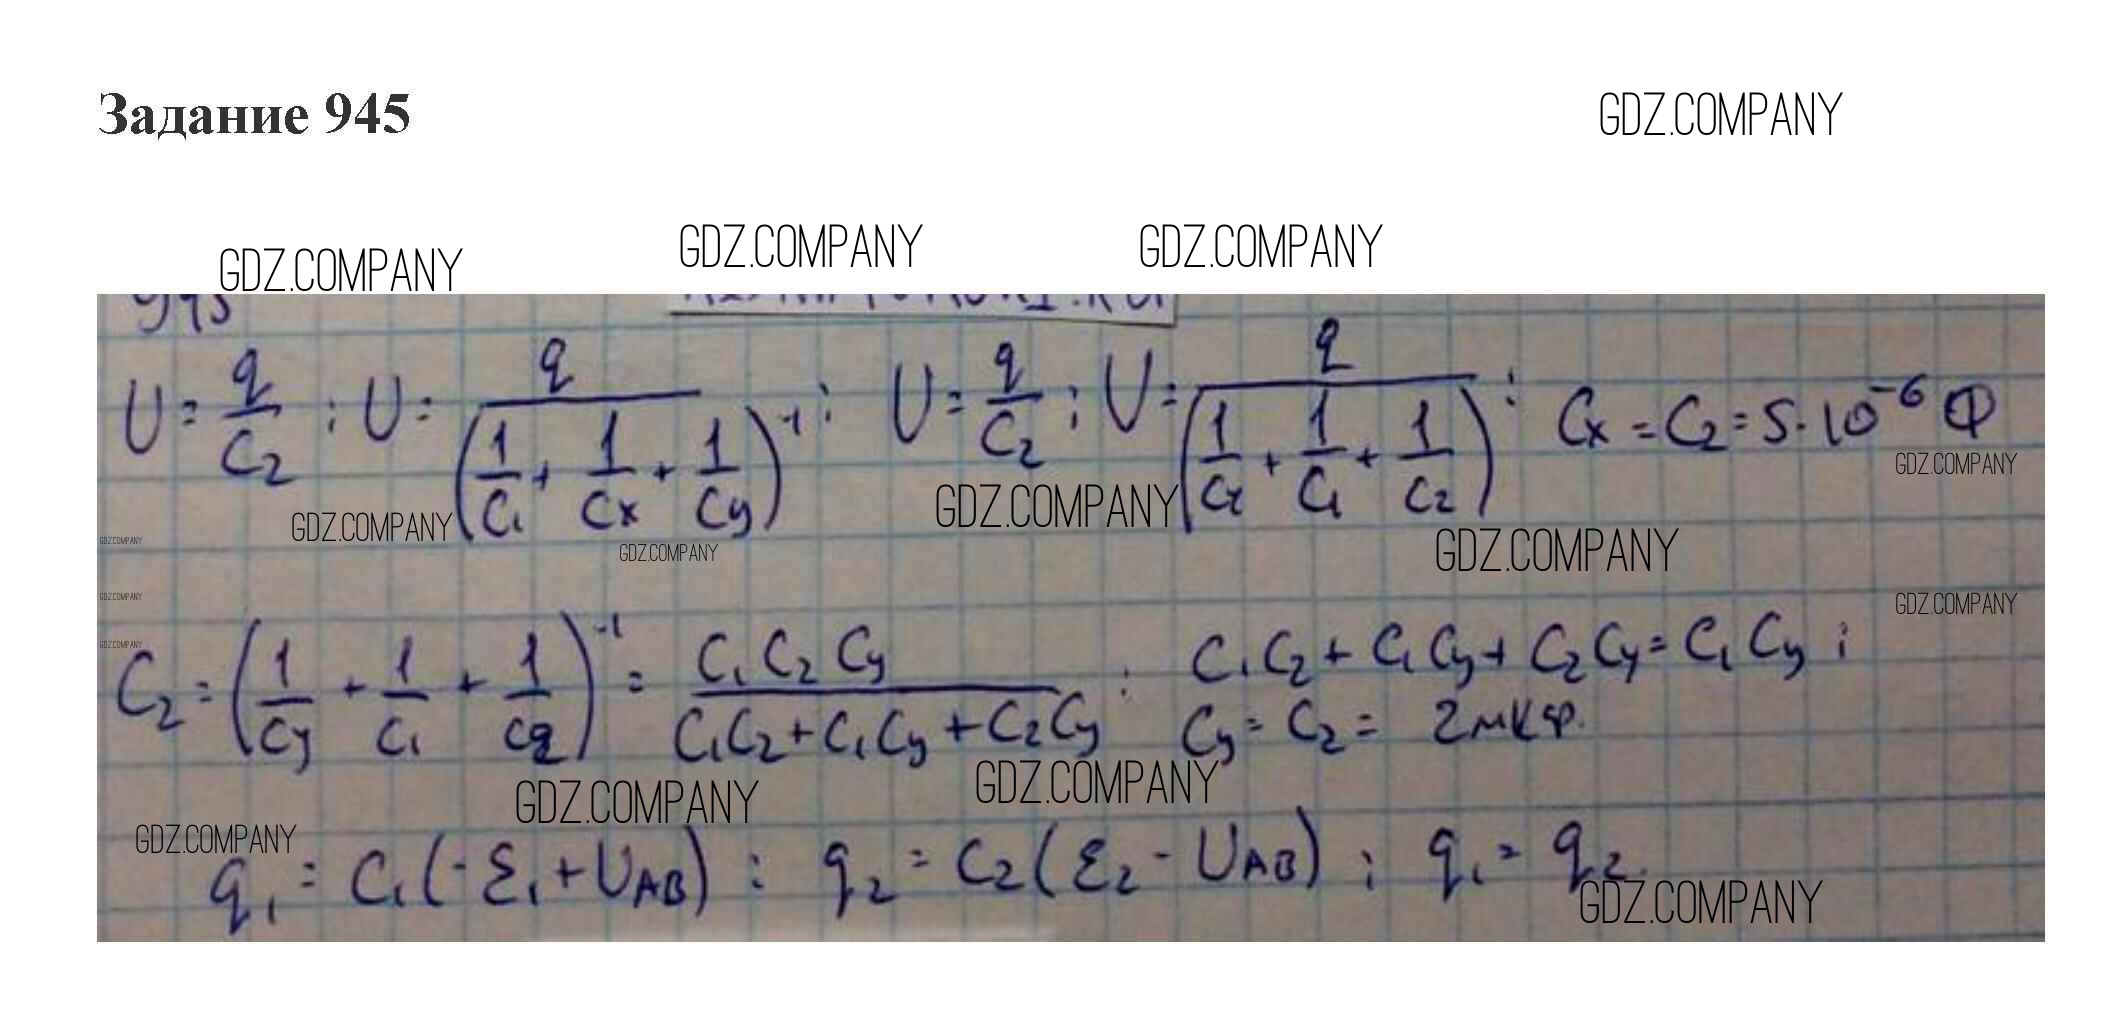 Задание 945
GDZ.COMPANY
GDZ.COMPANY GDZ.COMPANY GDZ.COMPANY
945
U = q/C₂ ; U = q/(1/C₁ + 1/Cx + 1/Cy)⁻¹ ; U = q/C₂ ; U = q/(1/C₂ + 1/C₁ + 1/C₂) ; Cx = C₂ = 5·10⁻⁶ Ф
GDZ.COMPANY
GDZ.COMPANY GDZ.COMPANY
GDZ.COMPANY GDZ.COMPANY GDZ.COMPANY
GDZ.COMPANY GDZ.COMPANY
GDZ.COMPANY
C₂ = (1/Cy + 1/C₁ + 1/C₂)⁻¹ = C₁C₂Cy/(C₁C₂ + C₁Cy + C₂Cy) ; C₁C₂ + C₁Cy + C₂Cy = C₁Cy ;
Cy = C₂ = 2мкФ.
GDZ.COMPANY GDZ.COMPANY
GDZ.COMPANY
q₁ = C₁(-ε₁ + UAB) ; q₂ = C₂(ε₂ - UAB) ; q₁ = q₂.
GDZ.COMPANY